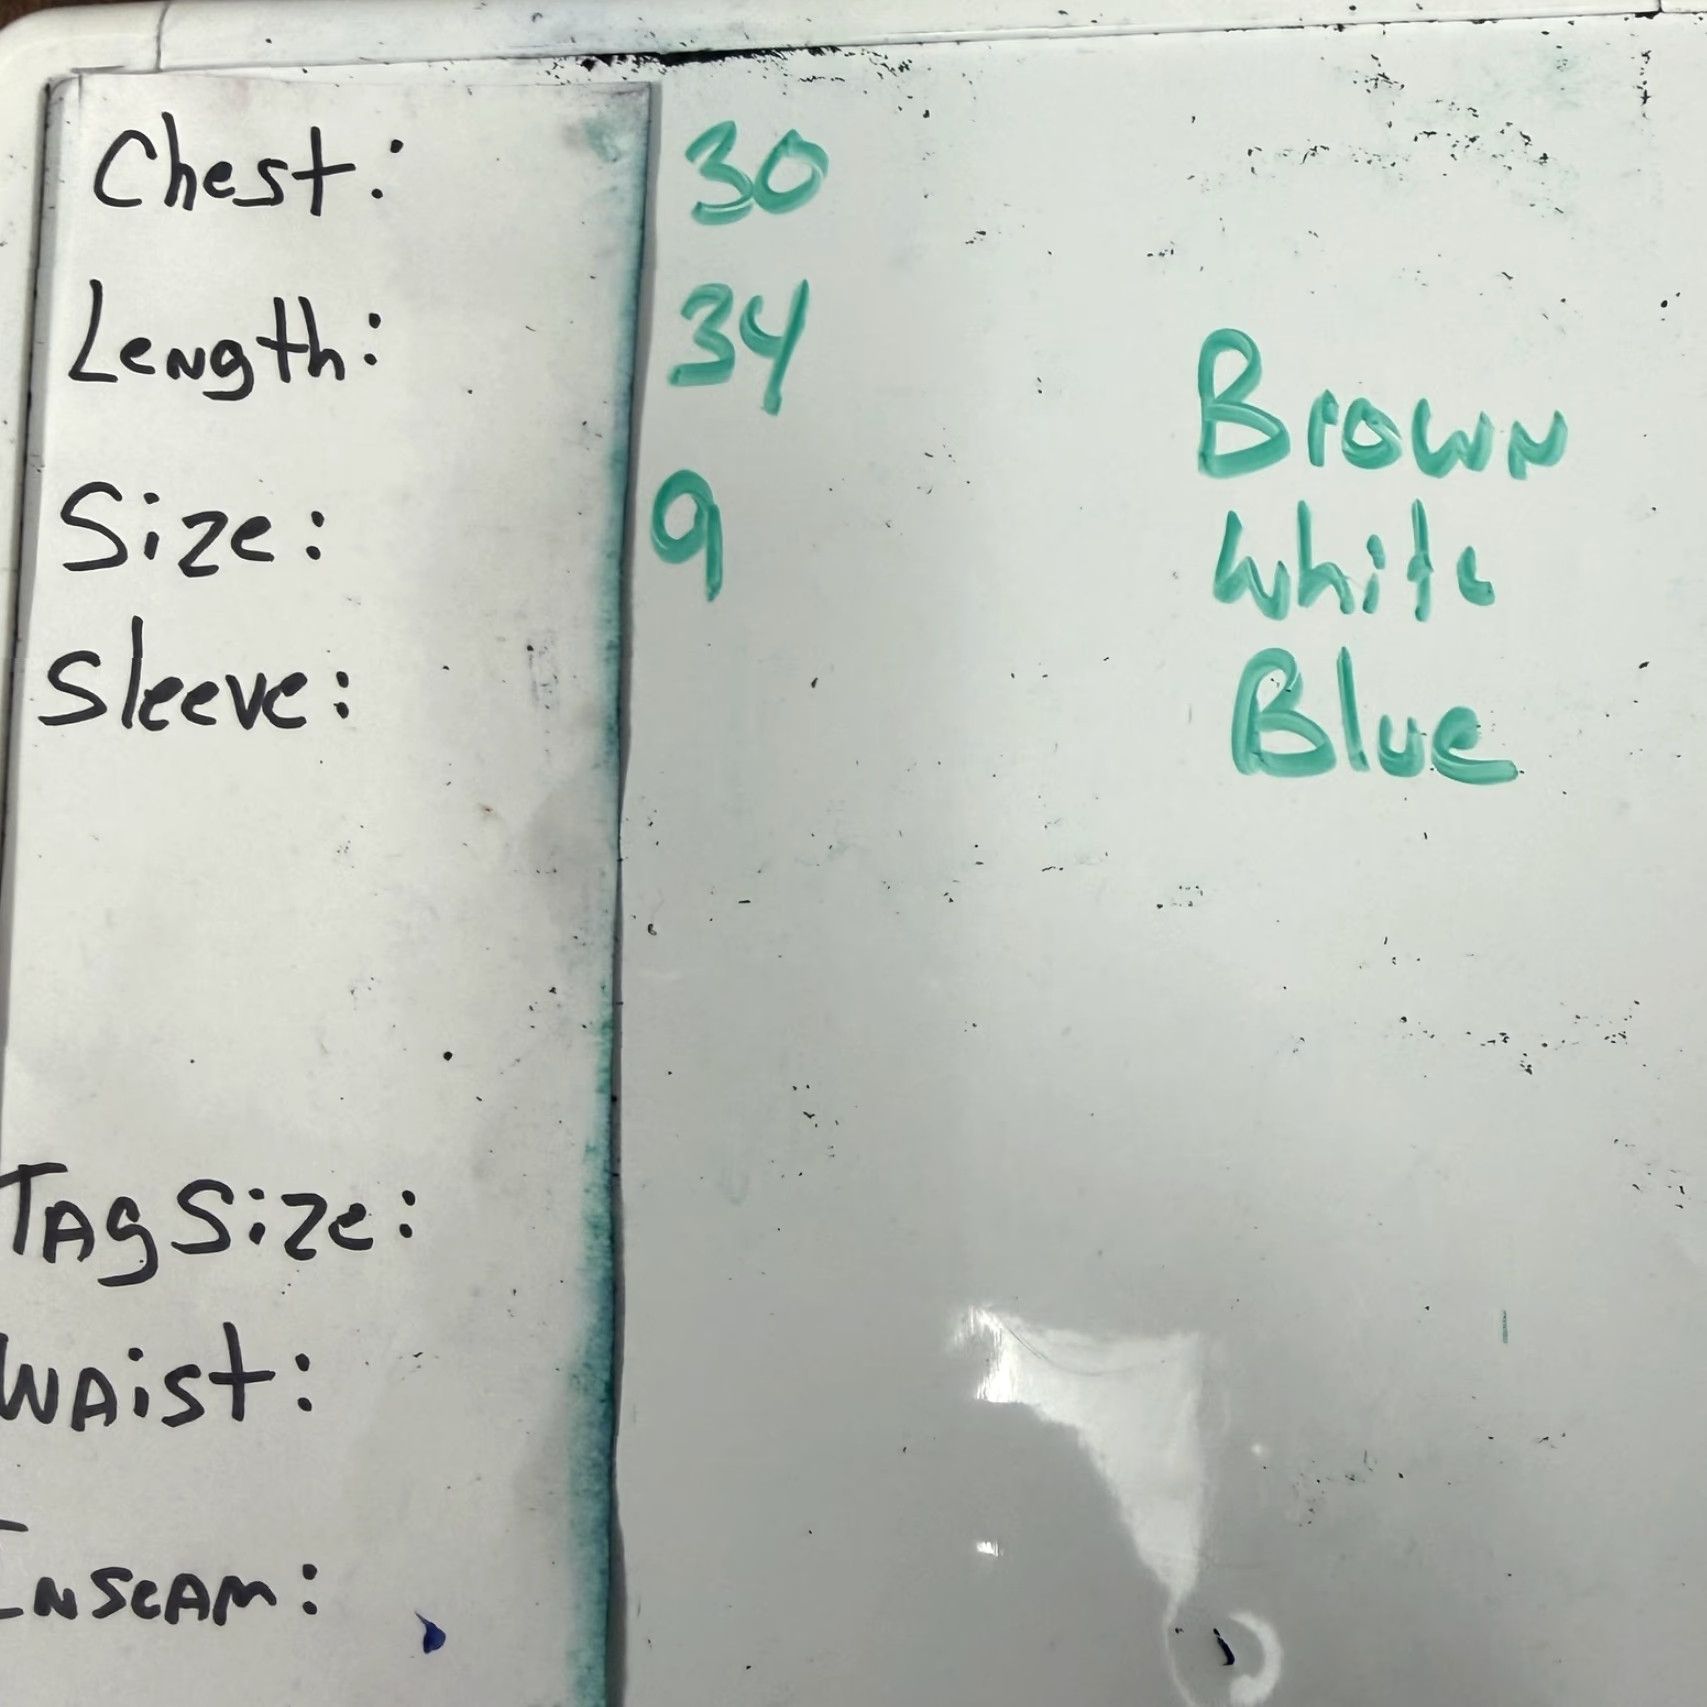 Chest: 30
Length: 34
Size: 9
Sleeve:
Brown
White
Blue
Tag Size:
Waist:
Inseam: